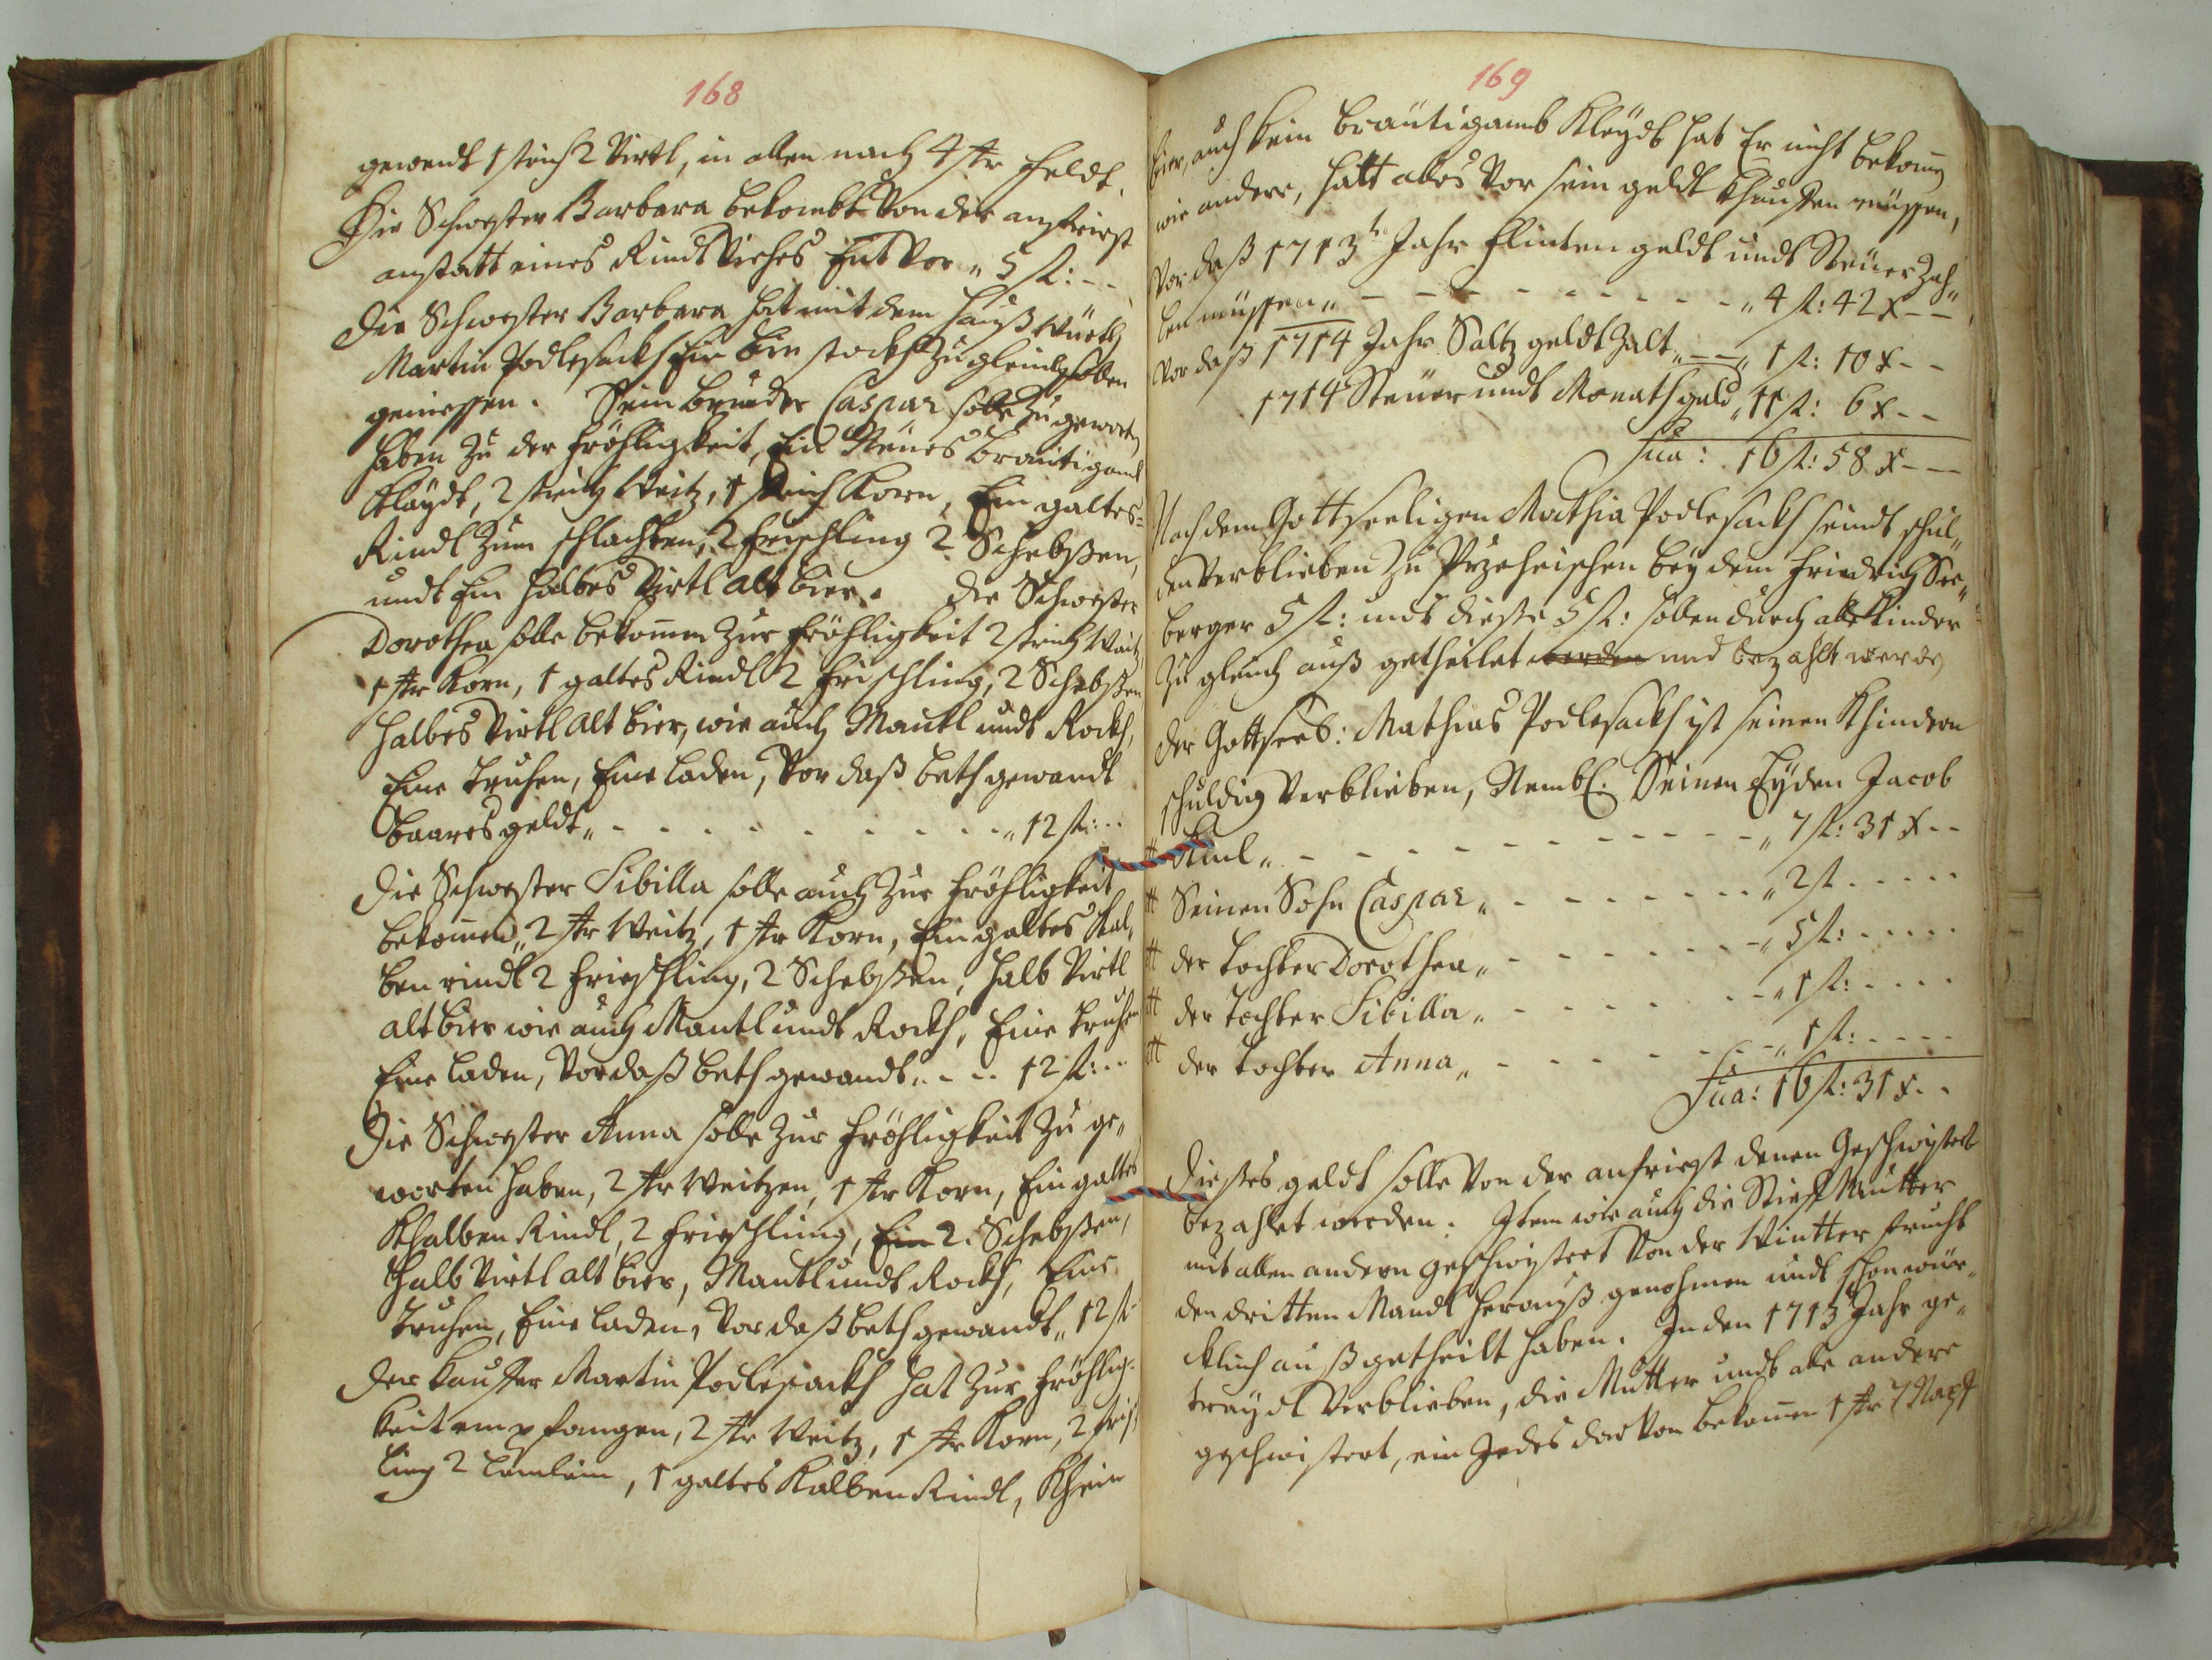 168
gewendt 1 strich 2 Virtl, in allen nach 4 Str Feldt.
Die Schwester Barbara bekombt von der
anstatt eines Rindt Viehes Vor „ 5 fl: - -
Die Schwester Barbara hat mit dem Hauß Würth
Martin Podlesackh Ein bin stockh Zugleich sollen
geniessen. Sein bruder Caspar solle Zu geworten
haben Zu der fröhligkeit, Ein Neues Brautigamb
Kläydt, 2 strich Weitz, 1 strich Korn, Ein galtes
Rindl Zum schlachten, 2 frischling 2 Schebßen,
undt Ein halbes Virtl alt bier. Die Schwester
Dorothea solle bekomen Zur fröhligkeit 2 strich Weitz
1 Str Korn, 1 galtes Rindl 2 frischling, 2 Schebßen
halbes Virtl alt bier, wie auch Mantl undt Rockh,
Eine Truhen, Eine Laden, Vor daß beth gewandt
baares geldt „ - - - - - - - - - - - „ 12 fl: - -
Die Schwester Sibilla solle auch Zur fröhligkeit
bekomen, 2 Str Weitz, 1 Str Korn, Ein galtes Kal„
ben rindl 2 frischling, 2 Schebßen, halb Virtl
alt bier wie auch Mantl undt Rockh, Eine Truhen
Eine Laden, Vor daß beth gewandt „ - - - 12 fl: - -
Die Schwester Anna solle Zur fröhligkeit Zu ge„
worten haben, 2 Str Weitzen, 1 Str Korn, Ein galtes
Khalben Rindl, 2 frischling, Ein 2. Schebßen,
halb Virtl alt bier, Mantl undt Rockh, Eine
Truhen, Eine Laden, Vor daß beth gewandt „ 12 fl
Der Kauffer Martin Podlesackh hat Zur fröhlig„
keit empfangen, 2 Str Weitz, 1 Str Korn, 2 frisch
ling 2 Lemlein, 1 galtes Kalben Rindl, Khein
169
bier, auch kein bräutigamb Kleydt hat Er nicht bekomen
wie andere, hatt alles Vor sein geldt Khauffen müssen,
Vor daß 1713t Jahr Flinten geldt undt Steuer Zah„
len müssen „ - - - - - - - - - - „ 4 fl: 42 x - -
Vor daß 1714 Jahr Saltz geldt Zalt „ - - „ 1 fl: 10 x - -
1714 Steuer undt Monath geld „ 11 fl: 6 x - -
Sua: 16 fl: 58 x - -
Nach dem Gottseeligen Mathia Podlesackh seindt schul„
den Verblieben Zu bey dem Friedrich See„
berger 5 fl: undt diese 5 fl: sollen durch alle Kinder
Zu gleich auß getheilet werden und bezahlt werden
Der Gottseel: Mathias Podlesackh ist seinen Khindern
schuldig Verblieben, Nembl: Seinen Eyden Jacob
# „ - - - - - - - - - - „ 7 fl: 31 x - -
# Seinen Sohn Caspar „ - - - - - - - „ 2 fl - - - -
# der Tochter Dorothea „ - - - - - - - „ 5 fl: - - - -
# der Tochter Sibilla „ - - - - - - - „ 1 fl: - - - -
# der Tochter Anna „ - - - - - - - „ 1 fl: - - - -
Sua: 16 fl: 31 x - -
Dießes geldt solle Von der denen Geschwistert
bezahlet werden. Item wie auch die Stieff Mutter
mit allen andern geschwistert Von der Wintter frucht
den dritten Mandl herauß genohmen undt schon wür„
cklich auß getheilt haben. In den 1713t Jahr ge„
traydt Verblieben, die Mutter undt alle andere
geschwistert, ein Jedes darvon bekomen 1 Str 7 Napf